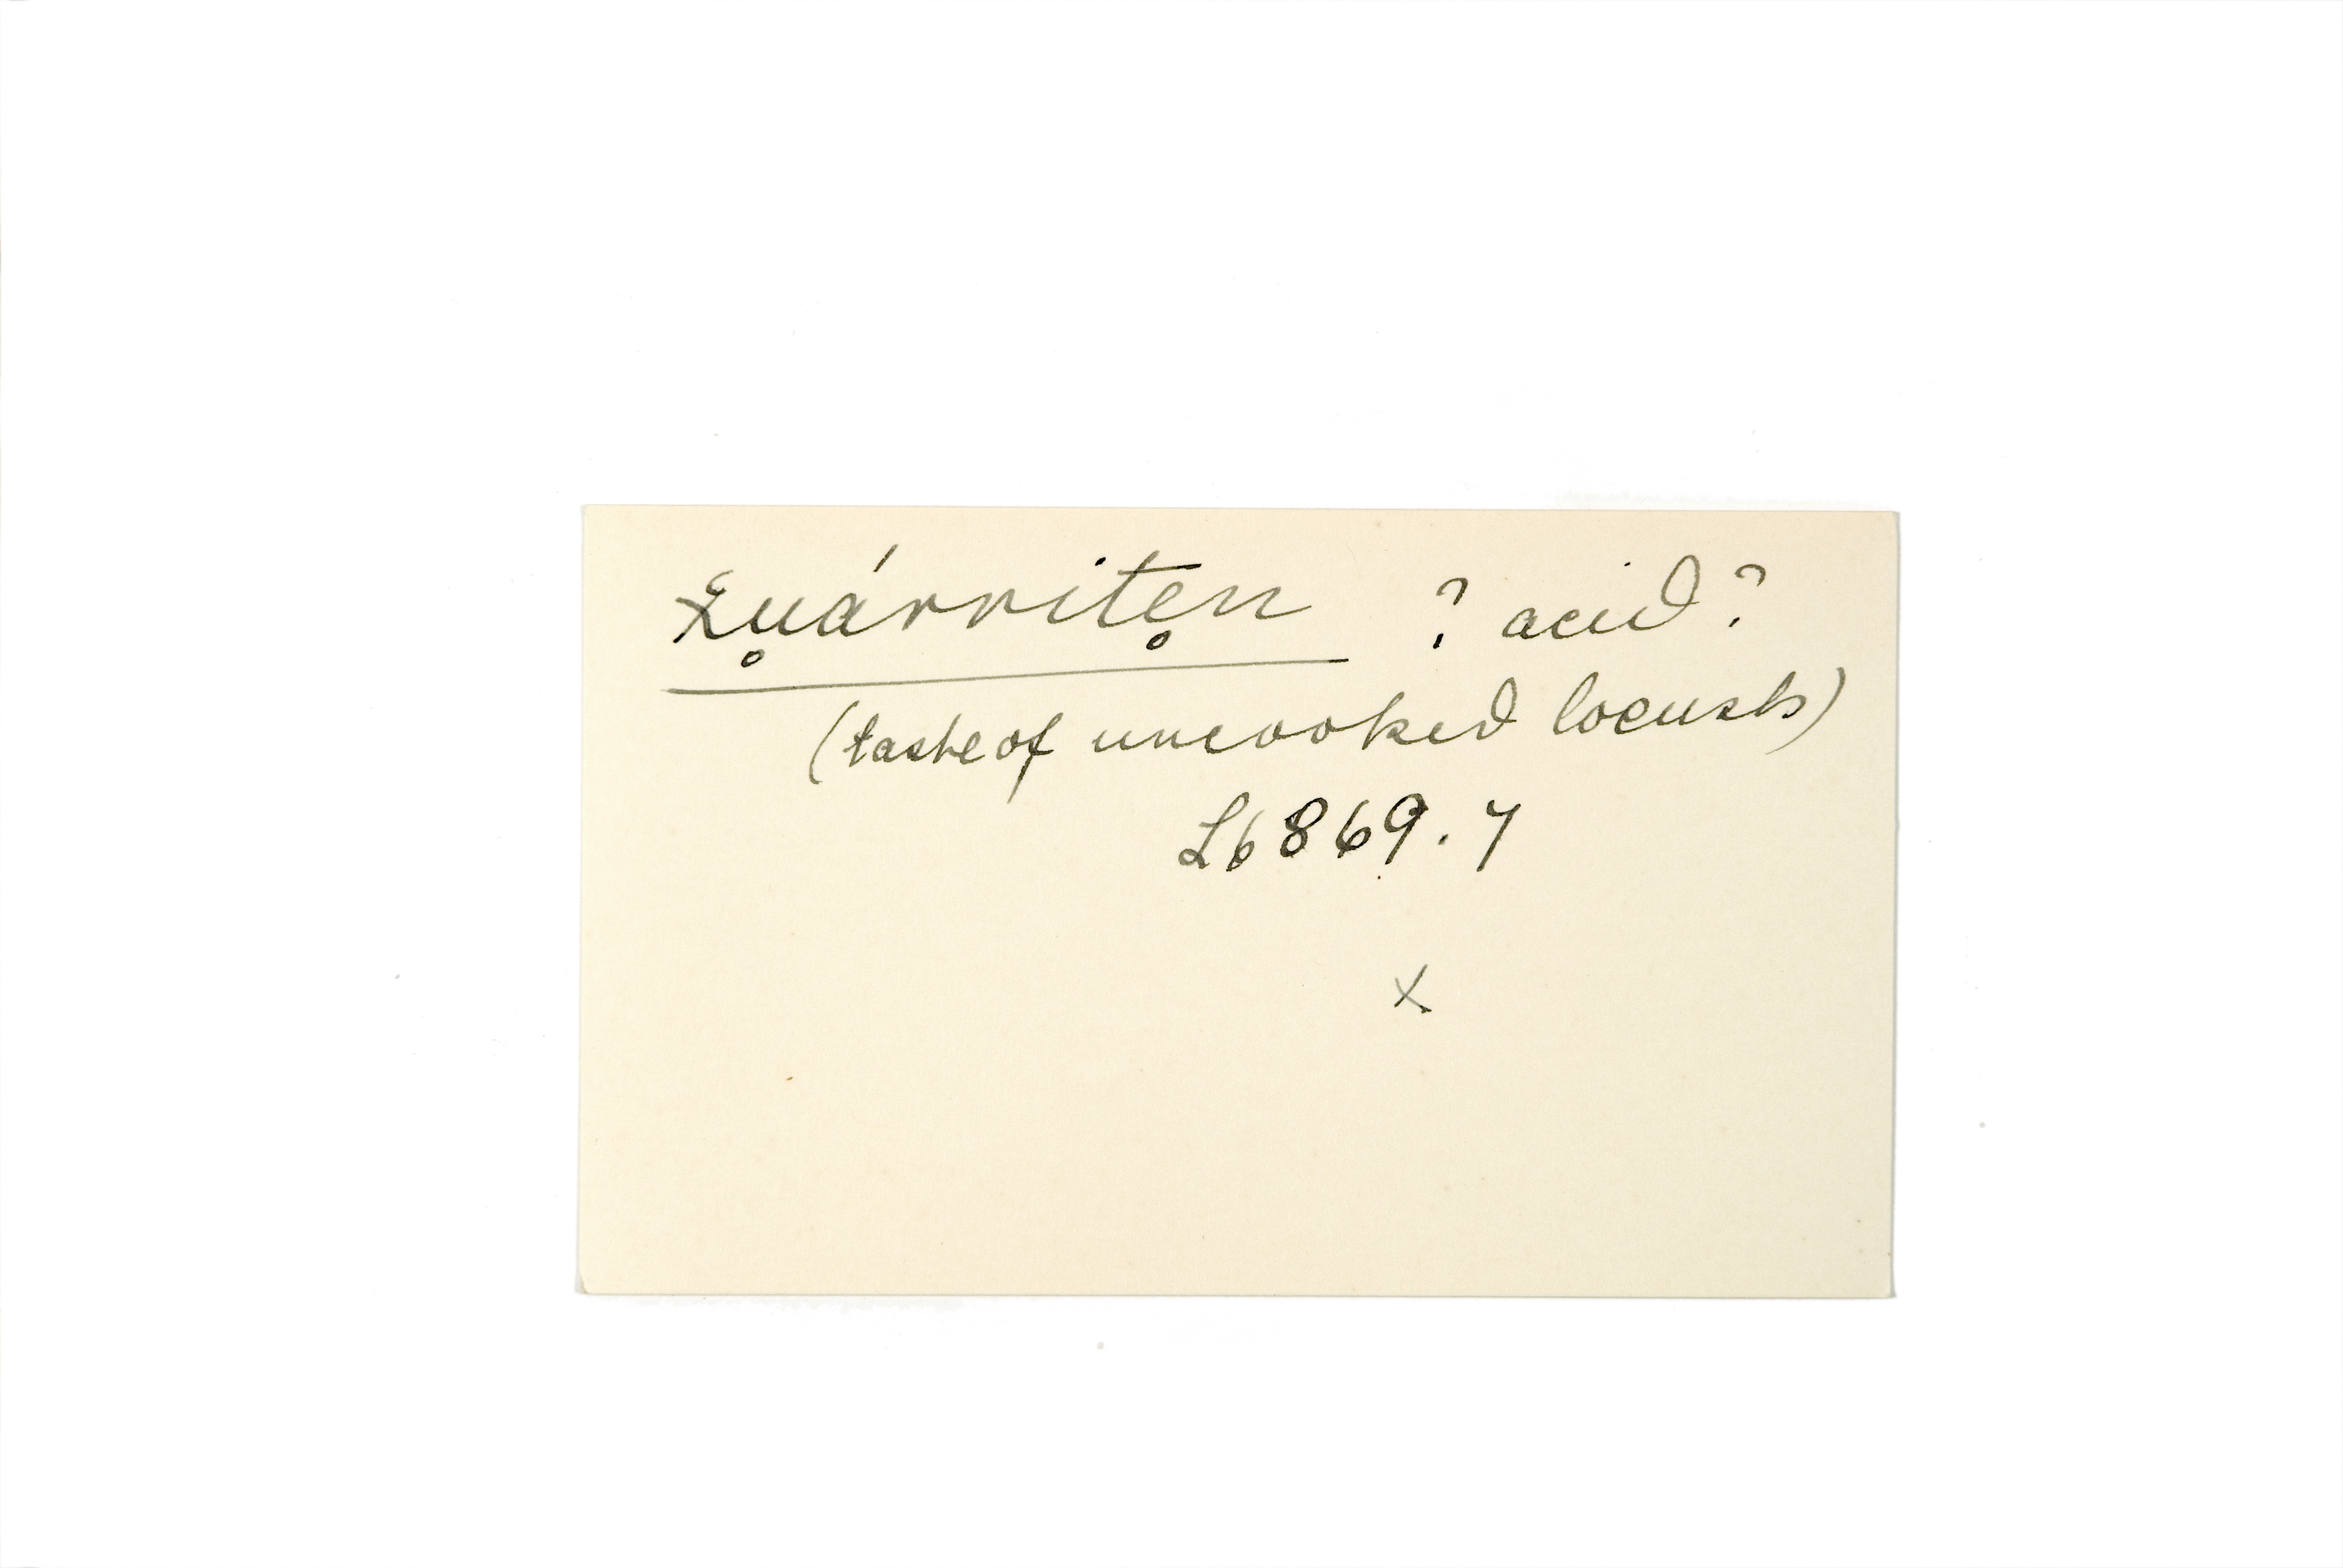 χu̥árrite̥n ? acid ?
(taste of uncooked locusts)
L6869.7
x